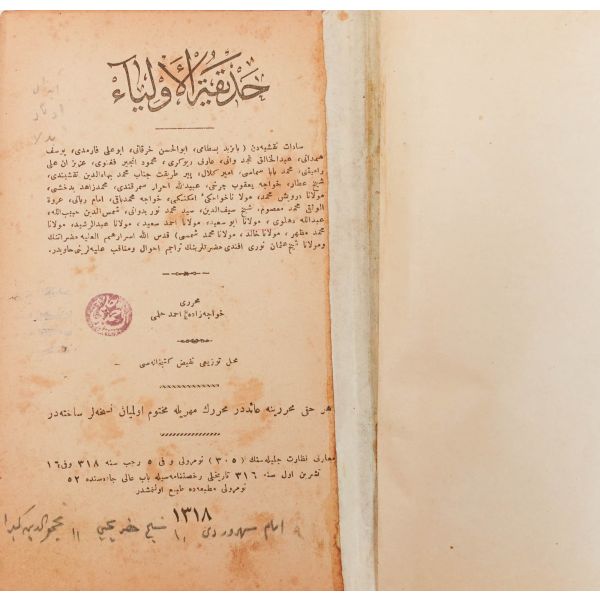 حديقة الأولياء
سادات نقشيه‌دن ( بايزيد بسطامى، ابوالحسن خرقانى، ابوعلى فارمدى، يوسف
همدانى، عبدالخالق غجدوانى، عارف ريوكرى، محمود انجير فغنوى، عزيزان على
راميتنى، محمد بابا سماسى، امير كلال، پير طريقت جناب محمد بهاءالدين نقشبندى،
شيخ عطار، خواجه يعقوب چرخى، عبيدالله احرار سمرقندى، محمد زاهد بدخشى،
مولانا درويش محمد، مولانا خواجكى امكنكى، خواجه محمد باقى، امام ربانى، عروة
الوثقى محمد معصوم، شيخ سيف‌الدين، سيد محمد نور بدوانى، شمس‌الدين حبيب‌الله،
عبدالله دهلوى، مولانا ابو سعيد، مولانا احمد سعيد، مولانا عبدالرشيد، مولانا
محمد مظهر، مولانا خالد، مولانا محمد شمسى) قدس الله اسرارهم العليه حضراتنك
ومولانا شيخ عثمان نورى افندى حضرتلرينك تراجم احوال و مناقب عليه‌لرينى حاويدر.
محررى
خواجه‌زاده احمد حلمى
محل توزيعى نفيض كتبخانه‌سى
هر حقى محررينه عائددر محررك مهريله مختوم اولميان نسخه‌لر ساخته‌در
معارف نظارت جليله‌سنك (٣٠٥) نومرولى و فى ٥ رجب سنه ٣١٨ وفى ١٦
تشرين اول سنه ٣١٦ تاريخلى رخصتنامه‌سيله باب عالى جاده‌سنده ٥٢
نومرولى مطبعه‌ده طبع اولنمشدر
١٣١٨
امام سهروردى // شيخ خضر يحيى // نجم‌الدين كبرا